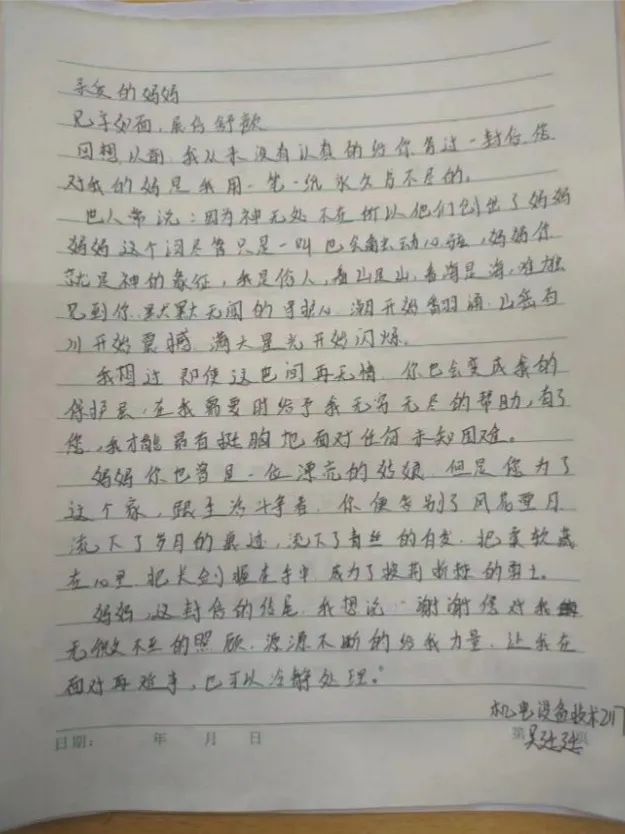 亲爱的妈妈
见字如面,展信舒颜
回想以前,我从来没有认真的给你写过一封信,您
对我的妈是我用一笔一纸永久与不尽的。
巴人常说:因为神无处不在所以他们创出了妈妈
妈妈这个词尽管只是一叫 已 动心弦,妈妈你
就是神的象征,我是伤人,看山是山,看海是海,唯独
见到你,默默无闻的守护心,潮开始翻涌,山岳百
川开始震撼,满天星光开始闪烁。
我想过即使这世间再无情,你也会变成我的
保护层,在我需要时给予我无穷无尽的帮助,有了
您,我才能昂首挺胸地面对任何未知困难。
妈妈你也曾是一位漂亮的姑娘,但是您为了
这个家,跟生活斗争着,你便告别了风花雪月
流下了岁月的 迹,流下了青丝的白发,把柔软藏
在心里,把长剑握在手中,成为了披荆斩棘的勇士。
妈妈,这封信的结尾,我想说:谢谢您对我
无微不至的照顾,源源不断的给我力量,让我在
面对再难事,也可以冷静处理。"
机电设备技术217
日期: 年 月 日 第 页
吴